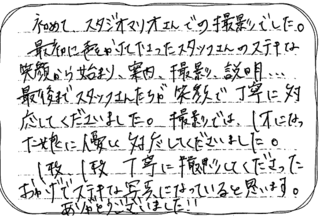 初めて、スタジオマリオさんでの撮影でした。
最初に声かけて下さったスタッフさんのステキな
笑顔から始まり、案内、撮影、説明...
最後までスタッフさんたちが笑顔で丁寧に対
応してくださいました。撮影では、1才になっ
た娘に優しく対応してくださいました。
1枚、1枚 丁寧に撮影してくださった
おかげでステキな写真になっていると思います。
ありがとうございました!!